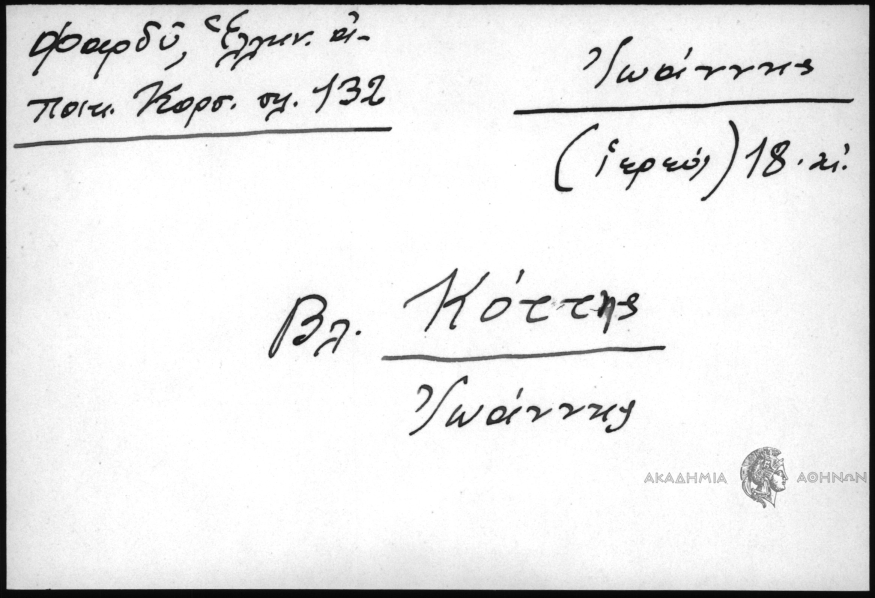 Φαρδῦ, Ἑλλην. ἀ-
ποικ. Κορσ. σλ. 132
Ἰωάννης
(ἱερεύς) 18. αἰ.
Βλ. Κόττης
Ἰωάννης
ΑΚΑΔΗΜΙΑ ΑΘΗΝΩΝ